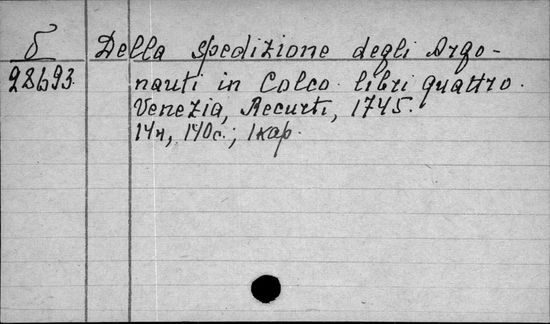 б Della spedizione degli Argo-
28693. nauti in Colco libri quattro.
Venezia, Recurti, 1745.
14н, 140с.; 1кар.